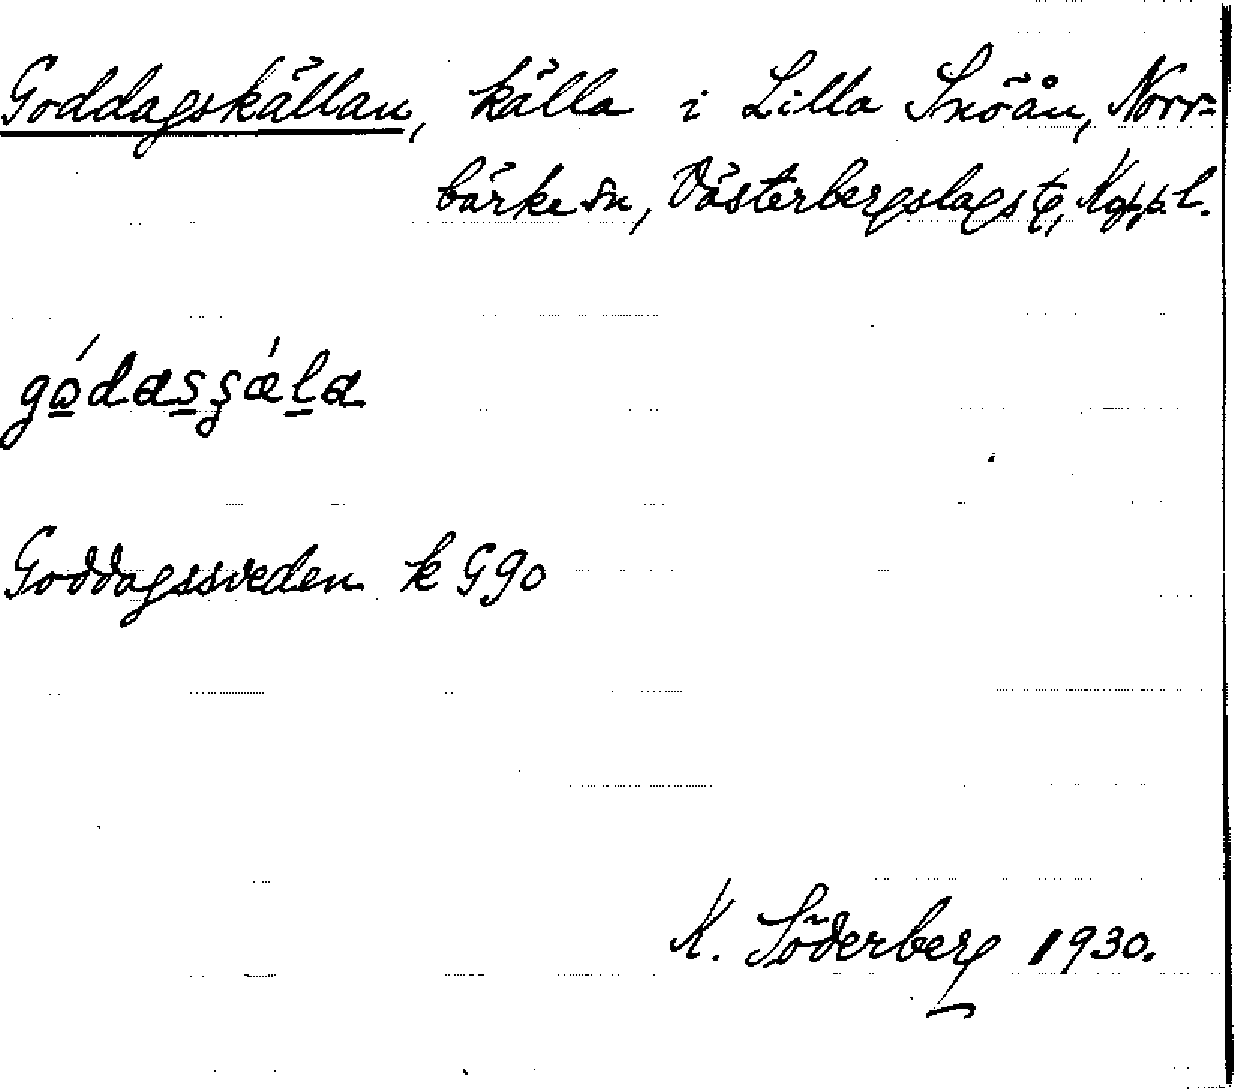 Goddagskällan, källa i Lilla Snöån, Norr-
bärke sn, Västerbergslags tg, Kopp. l.
gódasşǽla
Goddagssveden k G90
K. Söderberg 1930.